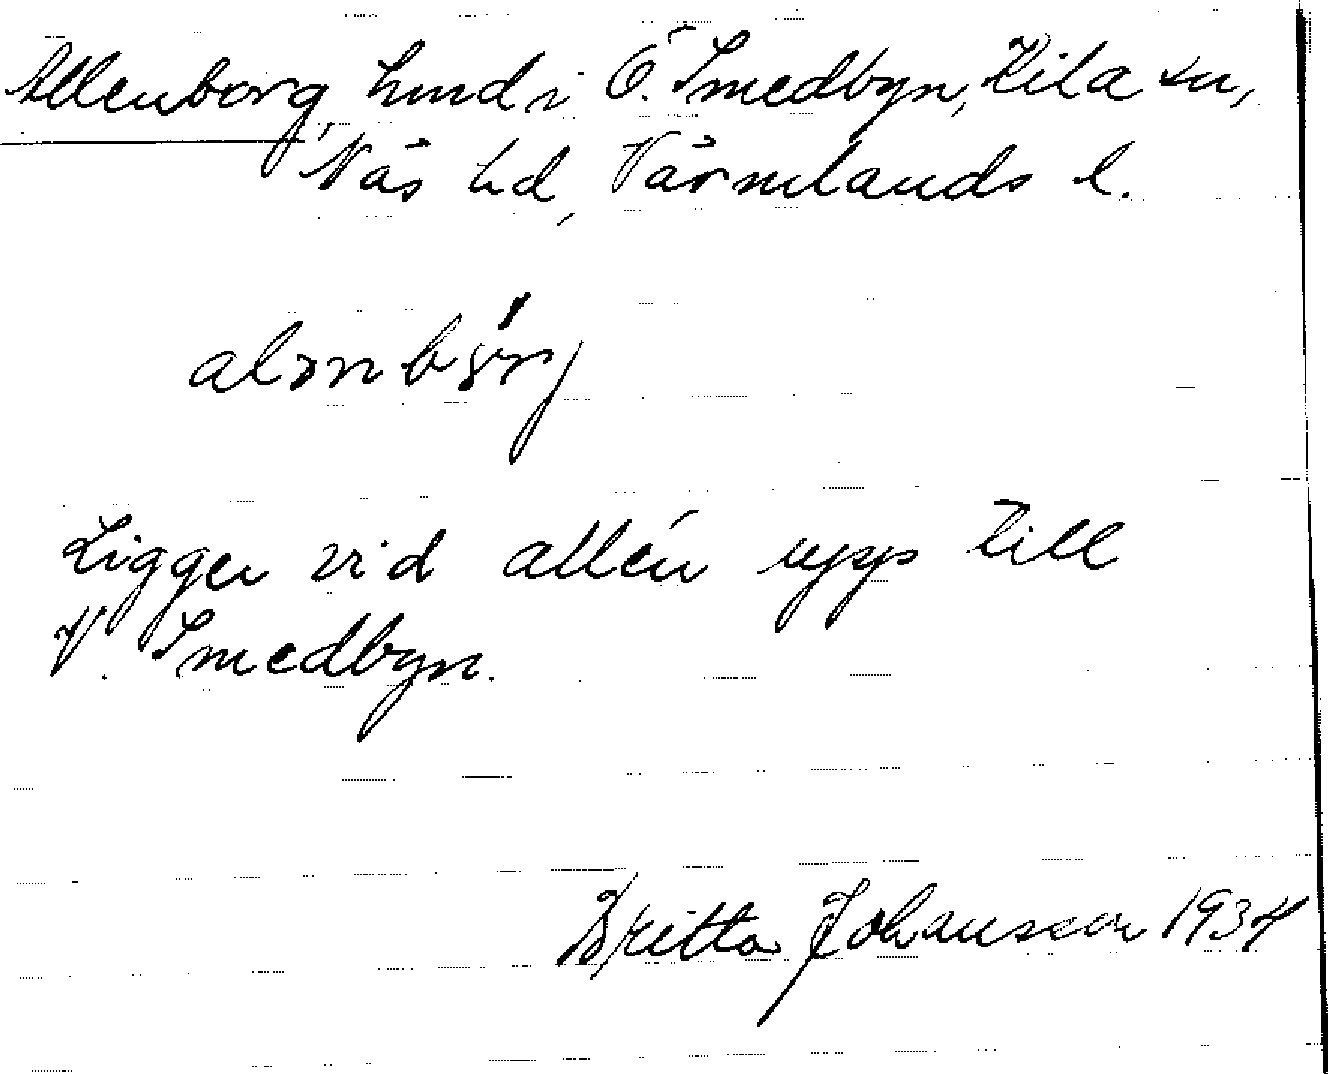 Allenborg, hmd i Ö. Smedbyn, Kila sn,
Näs hd, Värmlands l.
alənbårj
Ligger vid allén upp till
V. Smedbyn.
Britta Johansson 1934